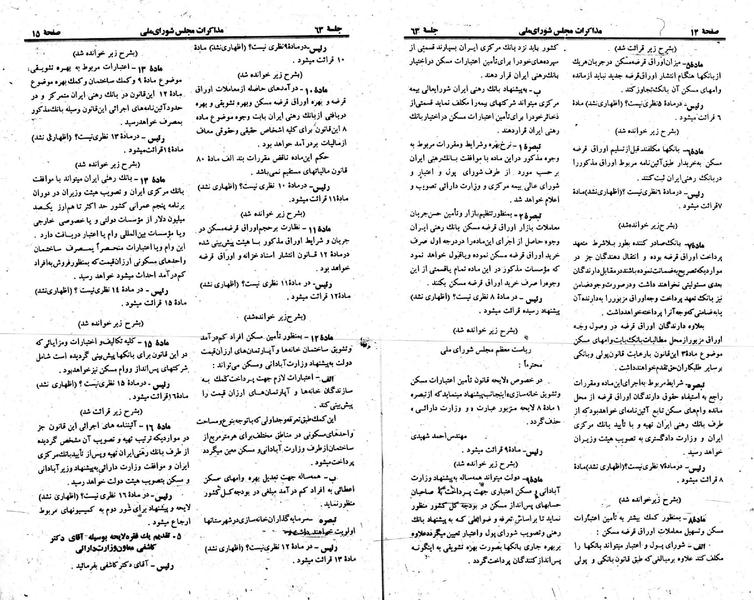 صفحهٔ ۱۴
مذاکرات مجلس شورای ملی
جلسهٔ ۶۳
(بشرح زیر قرائت شد)
مادهٔ۵ـ میزان اوراق قرضه مسکن در جریان هریک
از بانکها هنگام انتشار اوراق قرضه جدید نباید از مانده
وامهای مسکن آن بانک تجاوز کند.
رئیس ـ در مادهٔ ۵ نظری نیست؟ (اظهاری نشد) مادهٔ
۶ قرائت میشود.
(بشرح زیر خوانده شد)
مادهٔ۶ـ بانکها مکلفند قبل از تسلیم اوراق قرضه
مسکن به خریدار طبق آئین‌نامه مربوط اوراق مذکور را
در بانک رهنی ایران ثبت کنند.
رئیس ـ در مادهٔ ۶ نظری نیست؟ (اظهاری نشد) مادهٔ
۷ قرائت میشود.
(بشرح زیر خوانده شد)
مادهٔ۷ـ بانک صادر کننده بطور بلاشرط متعهد
پرداخت اوراق قرضه بوده و انتقال دهندگان جز در
مواردیکه تصریح به ضمانت نموده باشند در مقابل دارندگان
بعدی مسئولیتی نخواهند داشت و در صورت وجود ضامن
نیز بانک تعهد پرداخت وجه اوراق مزبور را به دارنده آن
یا به ضامنی که وجه آنرا پرداخته خواهد داشت.
بعلاوه دارندگان اوراق قرضه در وصول وجه
اوراق مزبور از محل مطالبات بانک بابت وامهای مسکن
موضوع مادهٔ ۳ این قانون با رعایت قانون پولی و بانکی
بر سایر طلبکاران حق تقدم خواهند داشت.
تبصره ـ شرایط مربوط به اجرای این ماده و مقررات
راجع به استیفاء حقوق دارندگان اوراق قرضه از محل
مانده وام‌های مسکن تابع آئین‌نامه‌ای خواهد بود که از
طرف بانک رهنی ایران تهیه و با تأیید بانک مرکزی
ایران و وزارت دادگستری به تصویب هیئت وزیران
خواهد رسید.
رئیس ـ در مادهٔ ۷ نظری نیست؟ (اظهاری نشد) مادهٔ
۸ قرائت میشود.
(بشرح زیر خوانده شد)
مادهٔ۸ـ بمنظور کمک بیشتر به تأمین اعتبارات
مسکن و تسهیل معاملات اوراق قرضه مسکن :
الف ـ شورای پول و اعتبار میتواند بانکها را
مکلف کند علاوه بر مبالغی که طبق قانون بانکی و پولی
کشور باید نزد بانک مرکزی ایران بسپارند قسمتی از
سپرده‌های خود را برای تأمین اعتبارات مسکن در اختیار
بانک رهنی ایران قرار دهند.
ب ـ به پیشنهاد بانک رهنی ایران شورایعالی بیمه
مرکزی میتواند شرکتهای بیمه را مکلف نماید قسمتی از
ذخائر خود را برای تأمین اعتبارات مسکن در اختیار بانک
رهنی ایران قرار دهند.
تبصره ۱ ـ نرخ بهره و شرایط و مقررات مربوط به
وجوه مذکور در این ماده با موافقت بانک رهنی ایران
بر حسب مورد از طرف شورای پول و اعتبار و
شورای عالی بیمه مرکزی و وزارت دارائی تصویب و
اعلام خواهد شد.
تبصره ۲ ـ بمنظور تنظیم بازار و تأمین حسن جریان
معاملات بازار اوراق قرضه مسکن بانک رهنی ایران
وجوه حاصل از اجرای این ماده را در درجه اول صرف
خرید اوراق قرضه مسکن نموده و یا قبول خواهد نمود
که مؤسسات مذکور در این ماده تمام یا قسمتی از این
وجوه را صرف خرید اوراق قرضه مسکن بکنند.
رئیس ـ در مادهٔ ۸ نظری نیست؟ (اظهاری نشد)
پیشنهاد رسیده قرائت میشود.
(بشرح زیر خوانده شد)
ریاست معظم مجلس شورای ملی
محترماً :
در خصوص لایحه قانون تأمین اعتبارات مسکن
و تشویق خانه‌سازی؛ اینجانب پیشنهاد مینماید که از تبصره
۱ مادهٔ ۸ لایحه مزبور عبارت « و وزارت دارائی »
حذف گردد.
مهندس احمد شهیدی
رئیس ـ مادهٔ ۹ قرائت میشود.
(بشرح زیر خوانده شد)
مادهٔ۹ـ دولت میتواند همه‌ساله به پیشنهاد وزارت
آبادانی و مسکن اعتباری جهت پرداخت به صاحبان
حسابهای پس‌انداز مسکن در بودجه کل کشور منظور
نماید تا بر اساس تعرفه و ضوابطی که به پیشنهاد بانک
رهنی و تصویب شورای پول و اعتبار تعیین میگردد علاوه
بر بهره جاری بانکها بصورت بهره تشویقی به اینگونه
پس‌انداز کنندگان پرداخت گردد.
جلسهٔ ۶۳
مذاکرات مجلس شورای ملی
صفحهٔ ۱۵
رئیس ـ در مادهٔ ۹ نظری نیست؟ (اظهاری نشد) مادهٔ
۱۰ قرائت میشود.
(بشرح زیر خوانده شد)
مادهٔ ۱۰ ـ درآمدهای حاصله از معاملات اوراق
قرضه و بهره اوراق قرضه مسکن و بهره تشویقی و بهره
دریافتی از بانک رهنی ایران بابت وجوه موضوع مادهٔ
۸ این قانون برای کلیه اشخاص حقیقی و حقوقی معاف
از مالیات بر درآمد خواهد بود.
حکم این ماده ناقض مقررات بند الف مادهٔ ۸۰
قانون مالیاتهای مستقیم نمی‌باشد.
رئیس ـ در مادهٔ ۱۰ نظری نیست؟ (اظهاری نشد)
مادهٔ ۱۱ قرائت میشود.
(بشرح زیر خوانده شد)
مادهٔ ۱۱ ـ نظارت بر حجم اوراق قرضه مسکن در
جریان و شرایط اوراق مذکور با هیئت پیش‌بینی شده
در مادهٔ ۱۲ قانون انتشار اسناد خزانه و اوراق قرضه
خواهد بود.
رئیس ـ در مادهٔ ۱۱ نظری نیست؟ (اظهاری نشد)
مادهٔ ۱۲ قرائت میشود.
(بشرح زیر خوانده شد)
مادهٔ ۱۲ ـ بمنظور تأمین مسکن افراد کم درآمد
و تشویق ساختمان خانه‌ها و آپارتمان‌های ارزان قیمت
دولت به پیشنهاد وزارت آبادانی و مسکن میتواند :
الف ـ اعتبارات لازم جهت پرداخت کمک به
سازندگان خانه‌ها و آپارتمان‌های ارزان قیمت را
پیش‌بینی کند.
این کمک طبق تعرفه و جداولی که با توجه بنوع و مساحت
واحدهای مسکونی در مناطق مختلف برای هر متر مربع از
ساختمان از طرف وزارت آبادانی و مسکن معین میگردد
پرداخت میشود.
ب ـ همه‌ساله جهت تعدیل بهره وامهای مسکن
اعطائی به افراد کم درآمد مبلغی در بودجه کل کشور
منظور نماید.
تبصره ـ سرمایه‌گذاران خانه‌سازی در شهرستانها
اولویت خواهند داشت.
رئیس ـ در مادهٔ ۱۲ نظری نیست؟ (اظهاری نشد)
مادهٔ ۱۳ قرائت میشود.
(بشرح زیر خوانده شد)
مادهٔ ۱۳ ـ اعتبارات مربوط به بهره تشویقی،
موضوع مادهٔ ۹ و کمک ساختمان و کمک بهره موضوع
مادهٔ ۱۲ این قانون در بانک رهنی ایران متمرکز و در
حدود آئین‌نامه‌های اجرائی این قانون وسیله بانک مذکور
بمصرف خواهد رسید.
رئیس ـ در مادهٔ ۱۳ نظری نیست؟ (اظهاری نشد)
مادهٔ ۱۴ قرائت میشود.
(بشرح زیر خوانده شد)
بانک رهنی ایران میتواند با موافقت
بانک مرکزی ایران و تصویب هیئت وزیران در دوران
برنامه پنجم عمرانی کشور حد اکثر تا هزار یکصد
میلیون دلار از مؤسسات دولتی و یا خصوصی خارجی
و یا مؤسسات بین‌المللی وام یا اعتبار دریافت دارد.
این وام و یا اعتبارات منحصراً بمصرف ساختمان
واحدهای مسکونی ارزان قیمت که بمنظور فروش به افراد
کم درآمد احداث میشود خواهد رسید.
رئیس ـ در مادهٔ ۱۴ نظری نیست؟ (اظهاری نشد)
مادهٔ ۱۵ قرائت میشود.
(بشرح زیر خوانده شد)
مادهٔ ۱۵ ـ کلیه تکالیف و اختیارات و مزایائی که
در این قانون برای بانکها پیش‌بینی گردیده است شامل
شرکتهای پس‌انداز و وام مسکن نیز خواهد بود.
رئیس ـ در مادهٔ ۱۵ نظری نیست؟ (اظهاری نشد)
مادهٔ ۱۶ قرائت میشود.
(بشرح زیر قرائت شد)
مادهٔ ۱۶ ـ آئیننامه های اجرائی این قانون جز
در مواردیکه ترتیب تهیه و تصویب آن مشخص گردیده
از طرف بانک رهنی ایران تهیه و پس از تأیید بانک مرکزی
ایران و موافقت وزارت دارائی به پیشنهاد وزیر آبادانی
و مسکن بتصویب هیئت دولت خواهد رسید.
رئیس ـ در مادهٔ ۱۶ نظری نیست؟ (اظهاری نشد)
لایحه و پیشنهاد برای شور دوم به کمیسیونهای مربوط
ارجاع میشود.
۵ـ تقدیم یک فقره لایحه بوسیله آقای دکتر
کاشفی معاون وزارت دارائی
رئیس ـ آقای دکتر کاشفی بفرمائید.